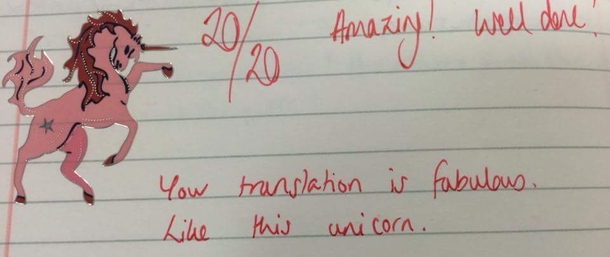 20/20 Amazing! Well done!
Your translation is fabulous.
Like this unicorn.